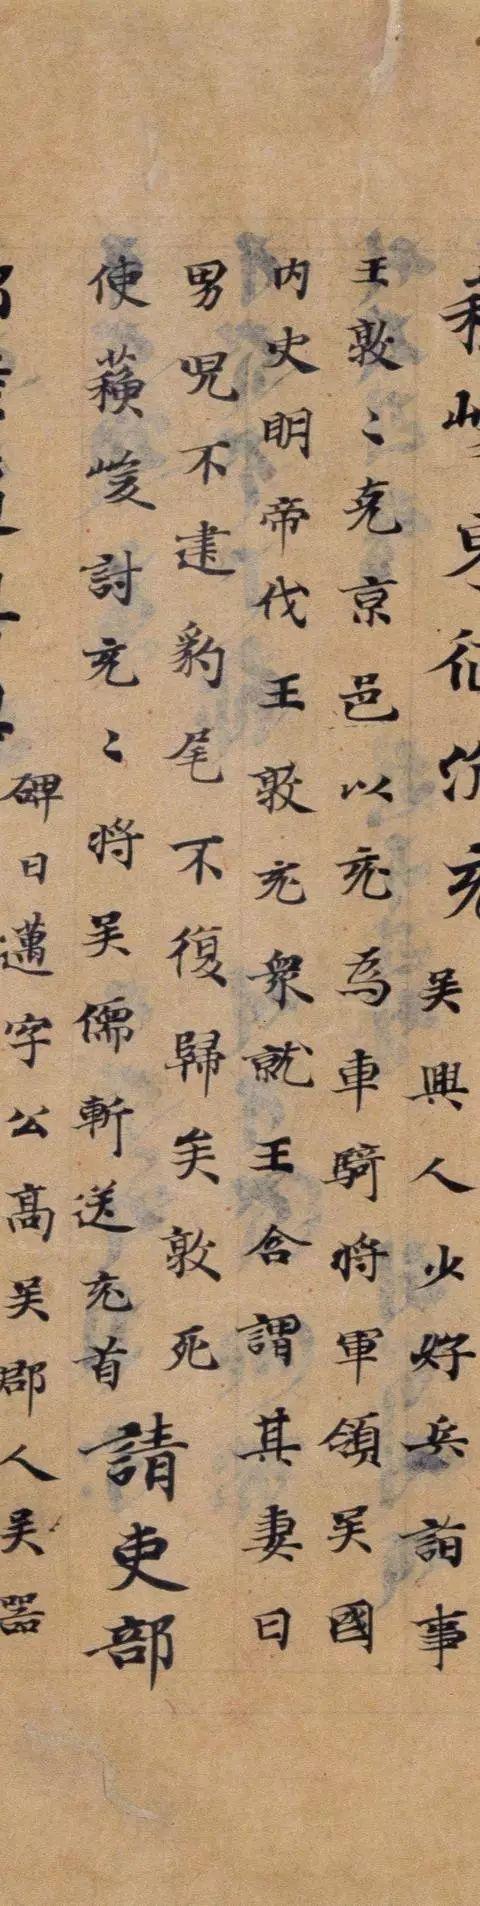 蘇峻東征沈充吳興人少好兵詣事
王敦〻克京邑以充爲車騎將軍領吳國
内史明帝伐王敦充衆就王含謂其妻曰
男兒不建豹尾不復歸矣敦死
使蘋峻討充〻將吳儒斬送充首請吏部
碑曰邁字公高吴郡人吴器